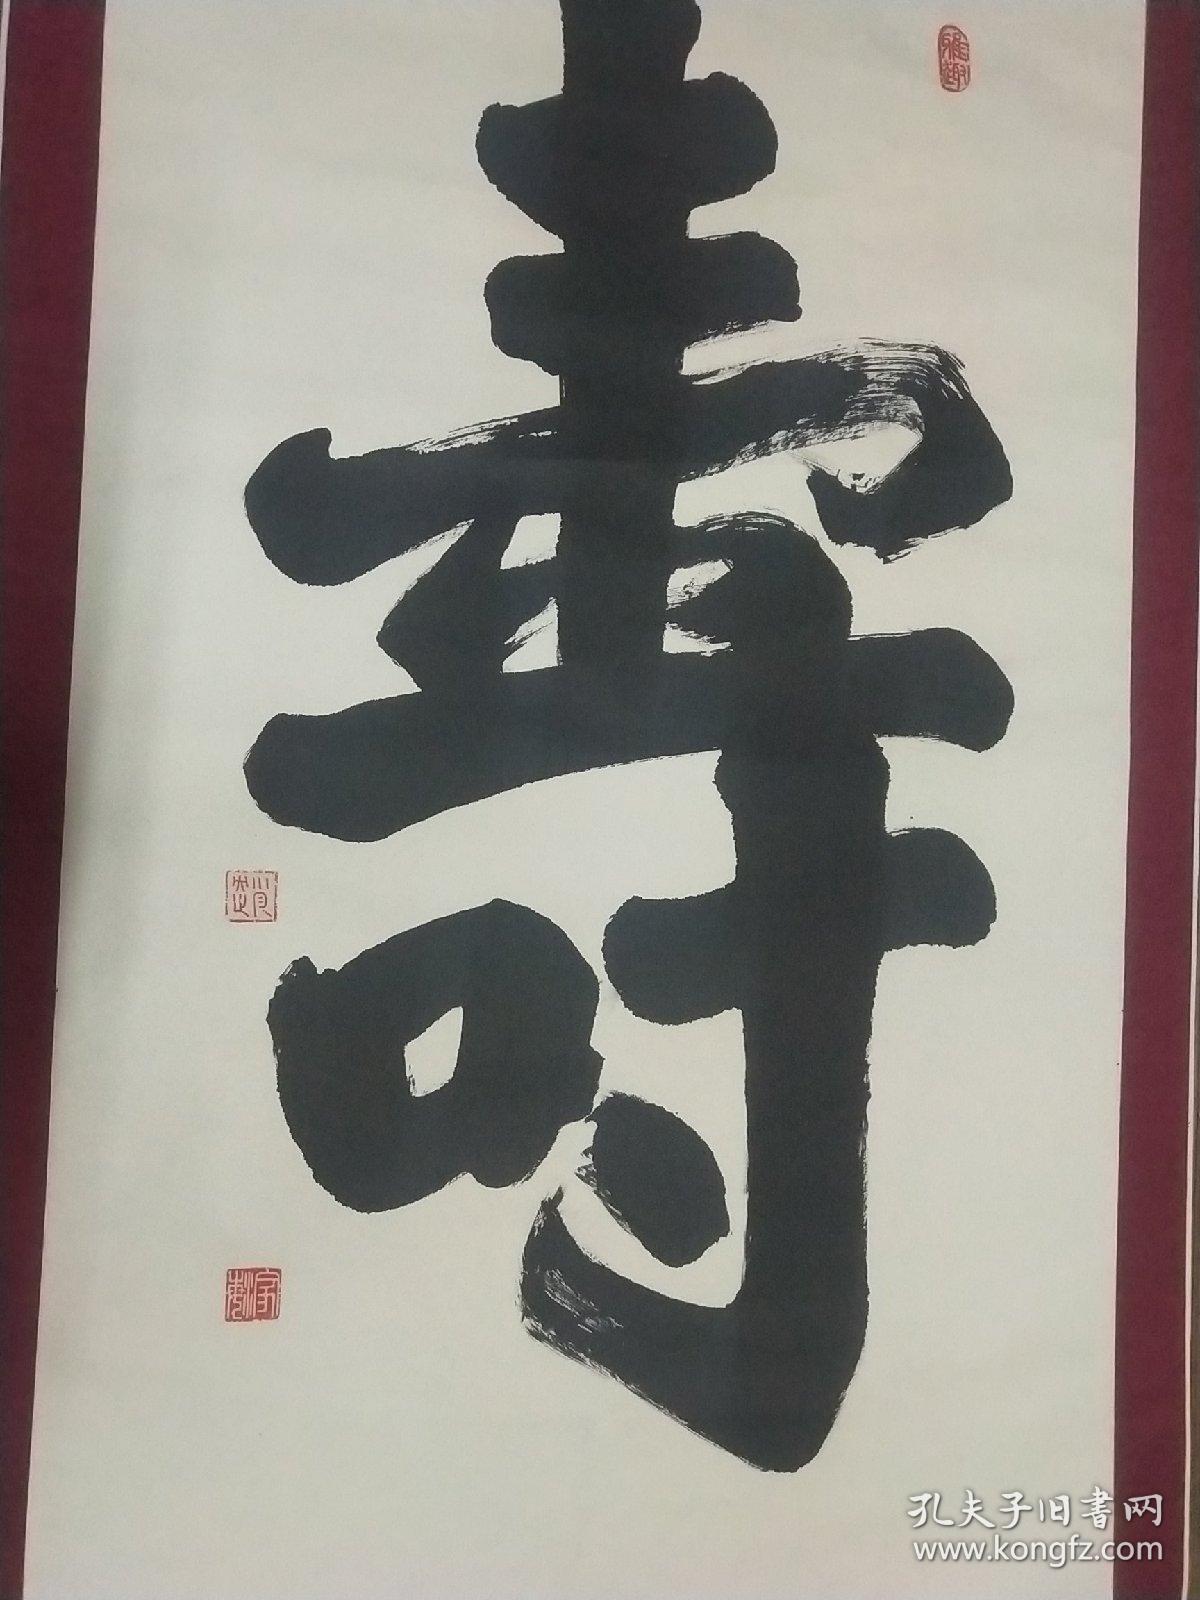 雅趣
壽
孔夫子旧書网
www.kongfz.com